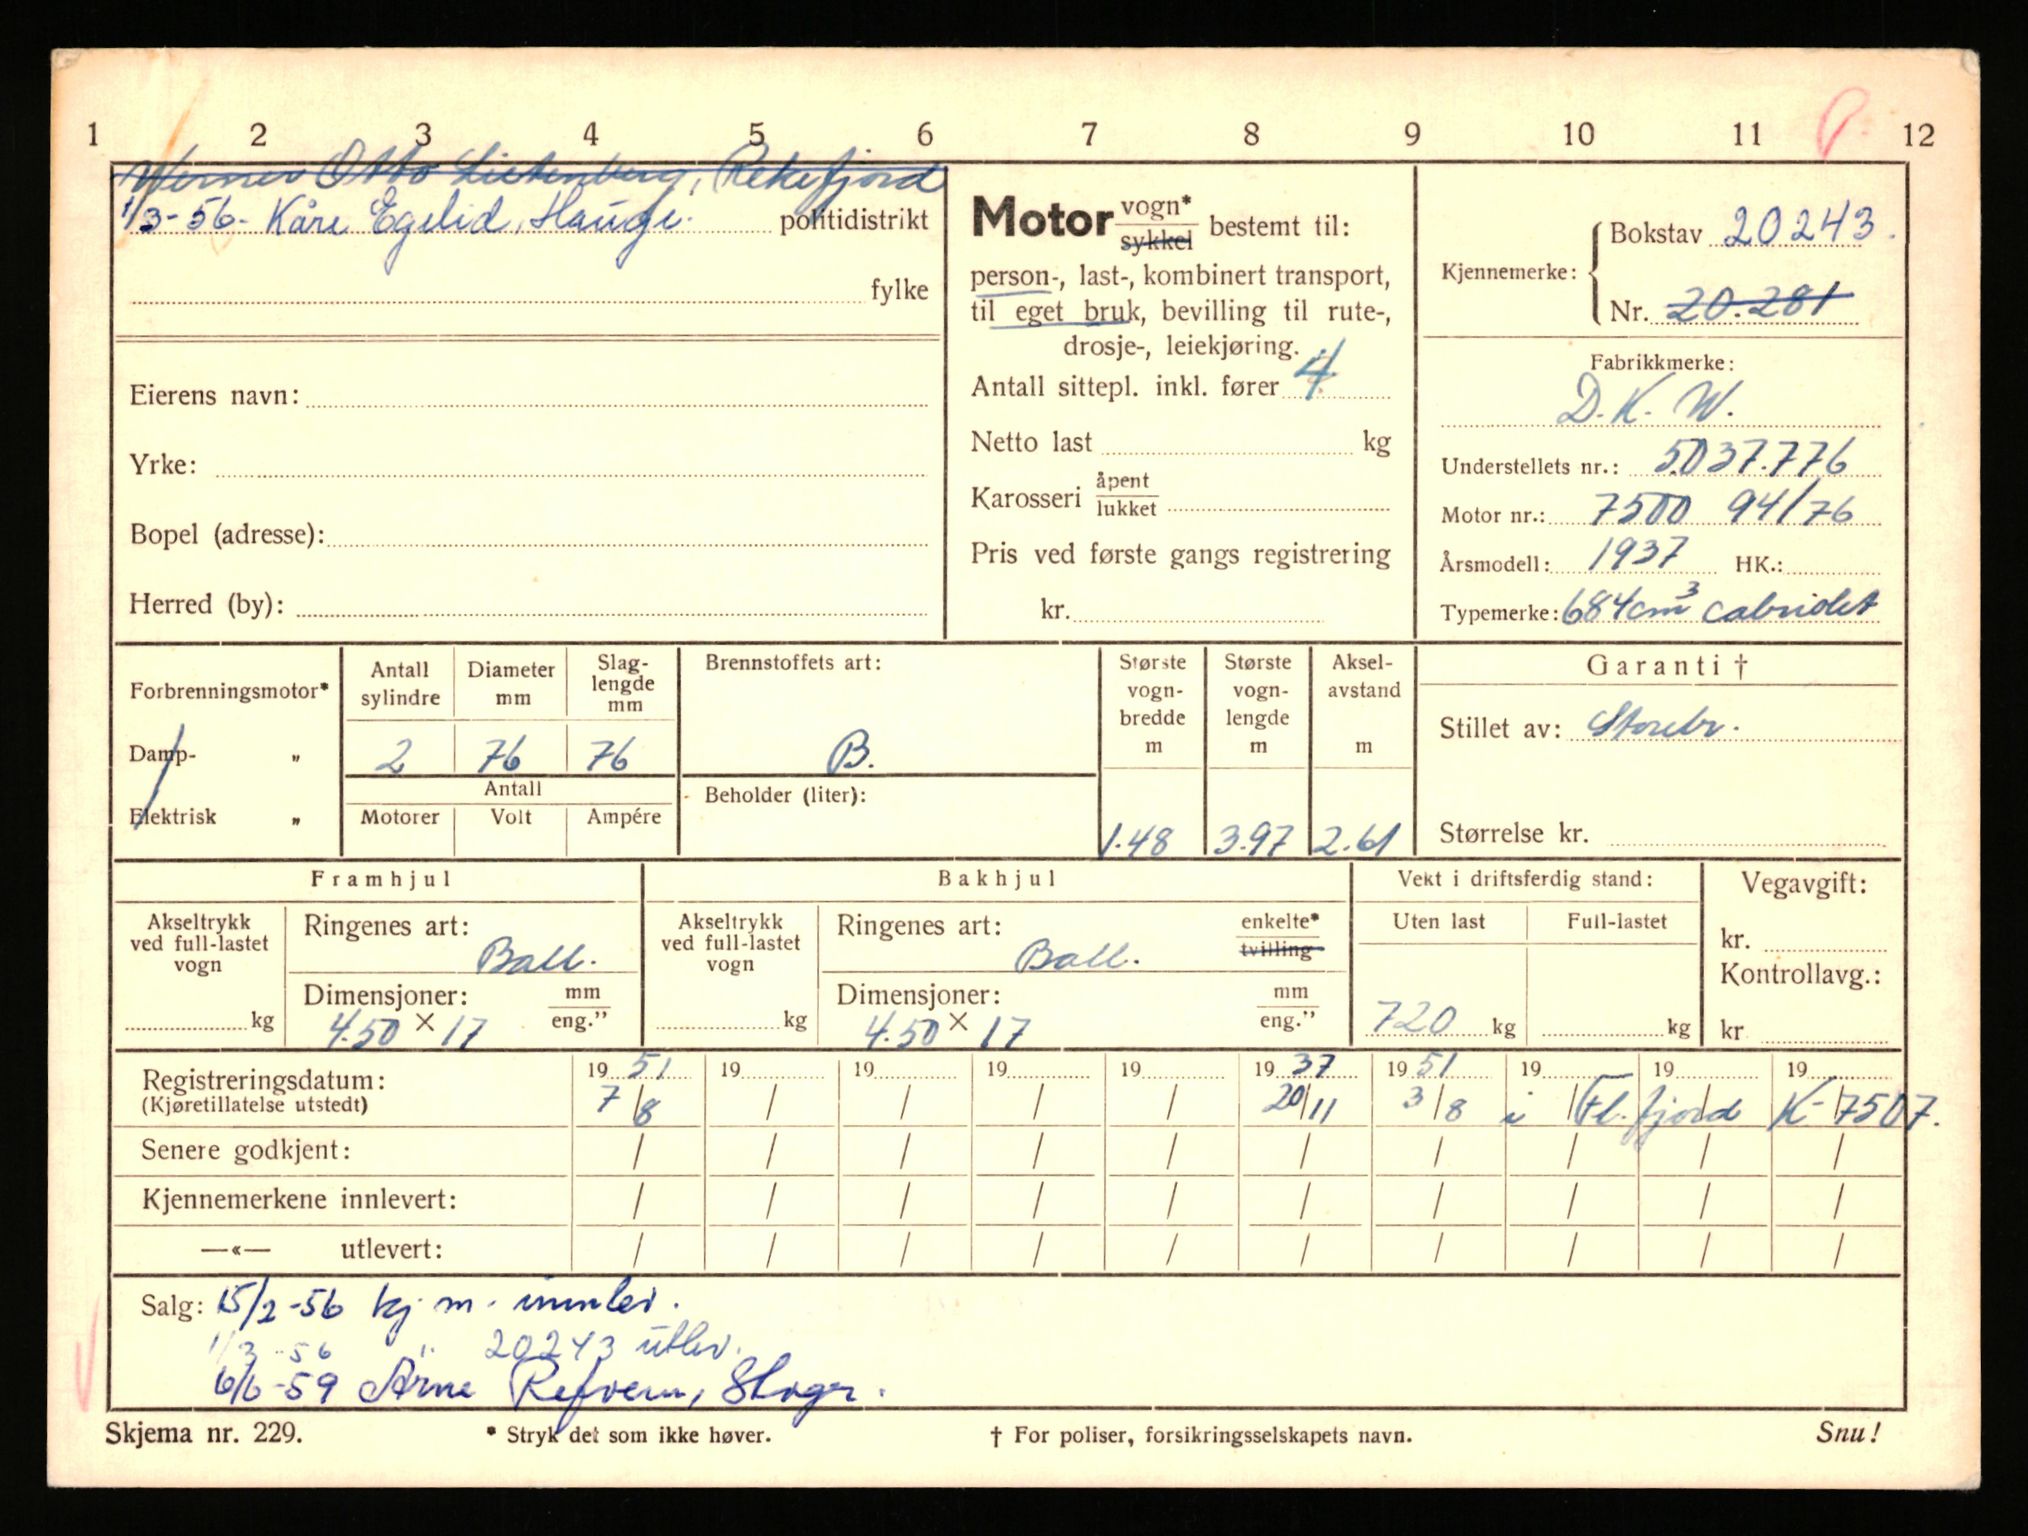 1 2 3 4 5 6 7 8 9 10 11 12
Werner Otto Lichtenberg, Rekefjord
1/3-56- Kåre Egelid, Hauge. politidistrikt
fylke
Eierens navn:
Yrke:
Bopel (adresse):
Herred (by):
Motor vogn* sykkel bestemt til:
person-, last-, kombinert transport,
til eget bruk, bevilling til rute-,
drosje-, leiekjøring.
Antall sittepl. inkl. fører 4
Netto last kg
Karosseri åpent lukket
Pris ved første gangs registrering
kr.
Kjennemerke: Bokstav 20243.
Nr. 20.281
Fabrikkmerke:
D.K.W.
Understellets nr.: 5037.776
Motor nr.: 7500 94/76
Årsmodell: 1937 HK.:
Typemerke: 684cm3 cabriolet
Forbrenningsmotor*
Damp- „
Elektrisk „
Antall sylindre
Diameter mm
Slaglengde mm
2 76 76
Antall
Motorer Volt Ampére
Brennstoffets art:
B.
Beholder (liter):
Største vogn-bredde m
Største vogn-lengde m
Aksel-avstand m
1.48 3.97 2.61
Garanti †
Stillet av: Storebr.
Størrelse kr.
Framhjul
Akseltrykk ved full-lastet vogn
kg
Ringenes art:
Ball.
Dimensjoner: mm eng.”
4.50 × 17
Bakhjul
Akseltrykk ved full-lastet vogn
kg
Ringenes art: enkelte* tvilling
Ball.
Dimensjoner: mm eng.”
4.50 × 17
Vekt i driftsferdig stand:
Uten last Full-lastet
720 kg kg
Vegavgift:
kr.
Kontrollavg.:
kr
Registreringsdatum: 19 51 19 19 19 19 19 37 19 51 19 19 19
(Kjøretillatelse utstedt) 7/8 / / / / 20/11 3/8 i Fl.fjord K-7507.
Senere godkjent: / / / / / / / / / /
Kjennemerkene innlevert: / / / / / / / / / /
—«— utlevert: / / / / / / / / / /
Salg: 15/2-56 kj.m. innlev.
1/3-56 " 20243 utlev.
6/6-59 Arne Refvem, Skoger.
Skjema nr. 229. * Stryk det som ikke høver. † For poliser, forsikringsselskapets navn. Snu!